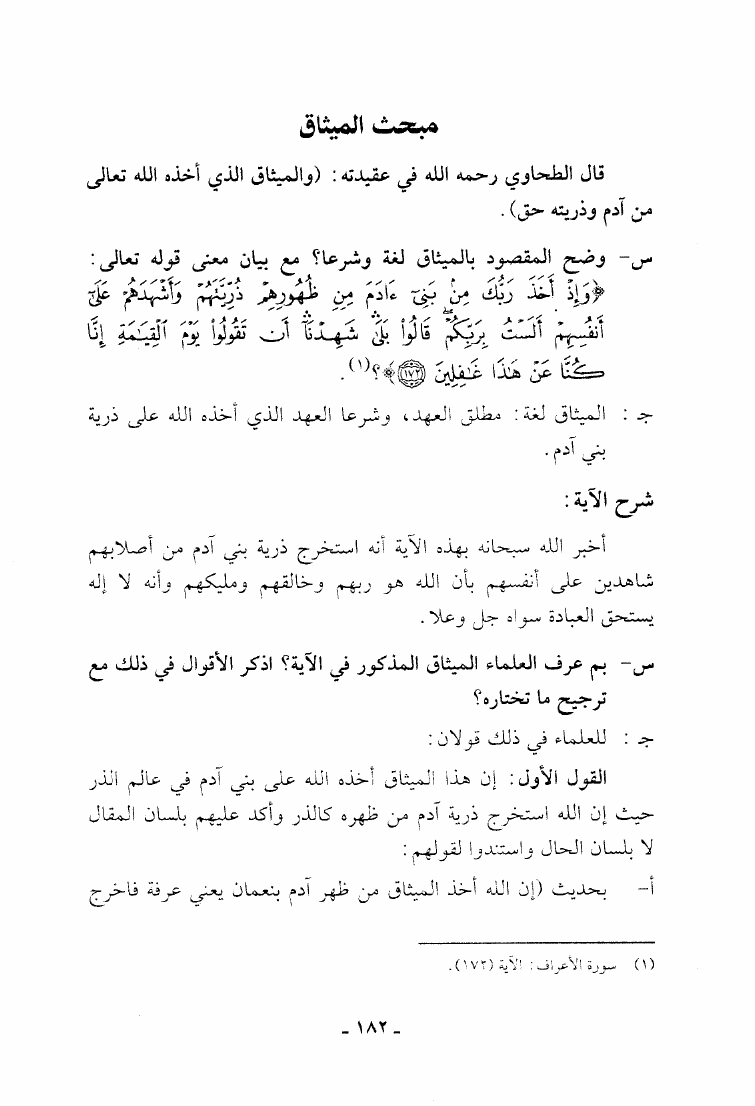 مبحث الميثاق
قال الطحاوي رحمه الله في عقيدته: (والميثاق الذي أخذه الله تعالى
من آدم وذريته حق).
س- وضح المقصود بالميثاق لغة وشرعا؟ مع بيان معنى قوله تعالى:
﴿وَإِذْ أَخَذَ رَبُّكَ مِنۢ بَنِىٓ ءَادَمَ مِن ظُهُورِهِمْ ذُرِّيَّتَهُمْ وَأَشْهَدَهُمْ عَلَىٰٓ
أَنفُسِهِمْ أَلَسْتُ بِرَبِّكُمْ ۖ قَالُوا۟ بَلَىٰ ۛ شَهِدْنَآ ۛ أَن تَقُولُوا۟ يَوْمَ ٱلْقِيَـٰمَةِ إِنَّا
كُنَّا عَنْ هَـٰذَا غَـٰفِلِينَ ١٧٢﴾؟(١).
جـ : الميثاق لغة: مطلق العهد، وشرعا العهد الذي أخذه الله على ذرية
بني آدم.
شرح الآية:
أخبر الله سبحانه بهذه الآية أنه استخرج ذرية بني آدم من أصلابهم
شاهدين على أنفسهم بأن الله هو ربهم وخالقهم ومليكهم وأنه لا إله
يستحق العبادة سواه جل وعلا.
س- بم عرف العلماء الميثاق المذكور في الآية؟ اذكر الأقوال في ذلك مع
ترجيح ما تختاره؟
جـ : للعلماء في ذلك قولان:
القول الأول: إن هذا الميثاق أخذه الله على بني آدم في عالم الذر
حيث إن الله استخرج ذرية آدم من ظهره كالذر وأكد عليهم بلسان المقال
لا بلسان الحال واستندوا لقولهم:
أ- بحديث (إن الله أخذ الميثاق من ظهر آدم بنعمان يعني عرفة فاخرج
(١) سورة الأعراف: الآية (١٧٢).
- ١٨٢ -